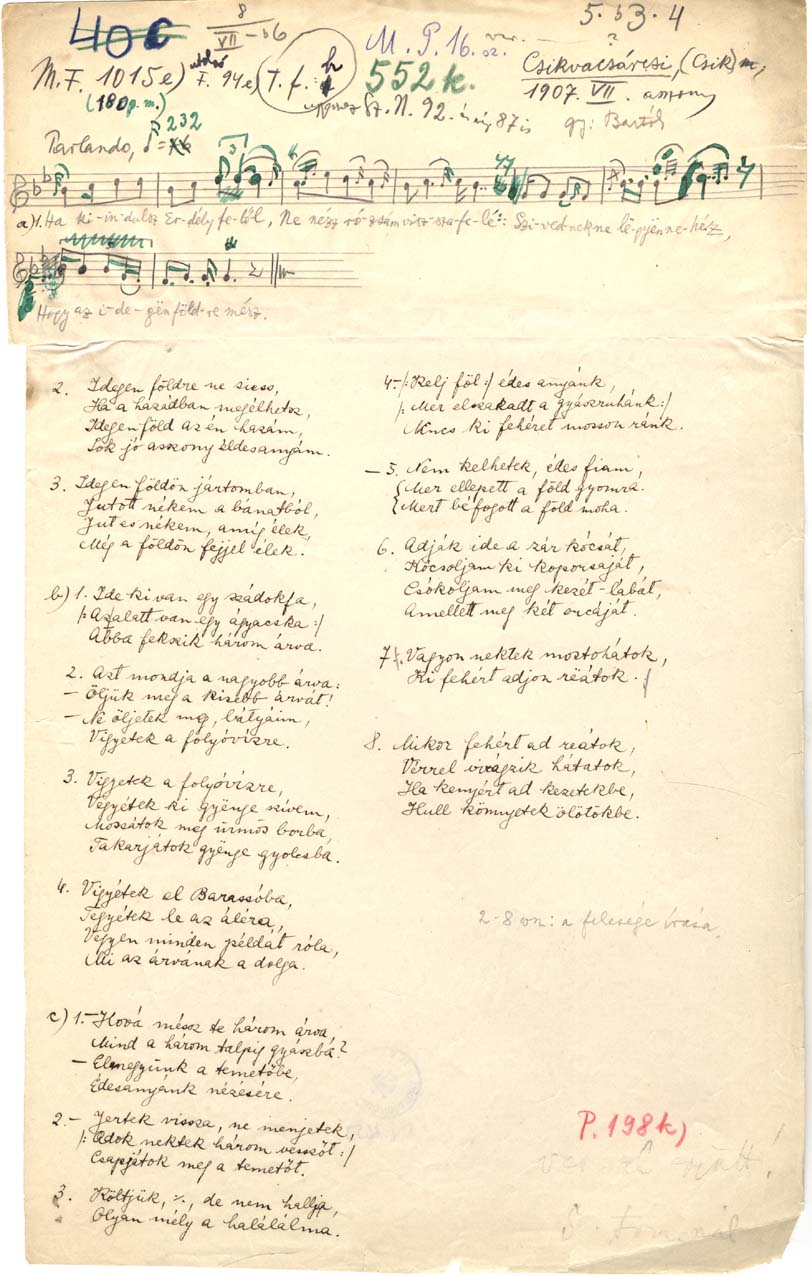 40c
8
VII -b6
M. P. 16. sz.
var.
5. b3. 4
M.F. 1015e) utolsó F. 94e) T. f.: h
552k.
Csikvacsárcsi, (Csik) m,
(180 p.m.)
Sz. N. 92.
87 is
1907. VII. asszony
gy: Bartók
Parlando, = 232
a) 1. Ha ki-in-dulsz Er-dély fe-lől, Ne nézz ró-zsám visz-sza-fe-lé: Szi-ved-nek ne lë-gyën ne-hész,
Hogy az i-de-gën föld-re mész.
2. Idegen földre ne siess,
Ha a hazádban megélhetsz,
Idegen föld az én hazám,
Sok jó asszony éldesanyám.
3. Idegen földön jártomban,
Jutott nékem a bánatból,
Jut es nékem, amig élek,
Még a földön féjjel élek.
b) 1. Ide ki van egy szádokfa,
/: Azalatt van egy ágyacska :/
Abba fekszik három árva.
2. Azt mondja a nagyobb árva:
– Öljük meg a kisebb árvát!
– Ne öljetek meg, bátyáim,
Vigyetek a folyóvizre.
3. Vigyetek a folyóvizre,
Végyétek ki gyënge szívem,
Mossátok meg ürmös borba,
Takarjátok gyënge gyolcsba.
4. Vigyétek el Barassóba,
Tegyétek le az áléra,
Végyen minden példát róla,
Mi az árvának a dolga.
c) 1. – Hová mész te három árva,
Mind a három talpig gyászbá?
– Elmegyünk a temetőbe,
Édesanyánk nézésére.
2. – Jertek vissza, ne menjetek,
/: Adok nektek három vesszőt :/
Csapjátok meg a temetőt.
3. Költjük, ٪, de nem hallja,
Olyan mély a halálálma.
4. – /: Kelj föl :/ édes anyánk,
/: Mer elszakadt a gyászruhánk :/
Nincs ki fehéret mosson ránk.
– 5. Nem kelhetek, édes fiam,
{ Mer ellepett a föld gyomra.
{ Mert béfogott a föld moha.
6. Adják ide a zár kócsát,
Kócsoljam ki koporsaját,
Csókoljam meg kezét-lábát,
Amellett meg két orcáját.
7. Vagyon nektek mostohátok,
Ki fehért adjon réátok.
8. Mikor fehért ad reátok,
Vérrel virágzik hátatok,
Ha kenyért ad kezetekbe,
Hull könnyetek ölötökbe.
2-8 vsz: a felesége írása
P. 198k)